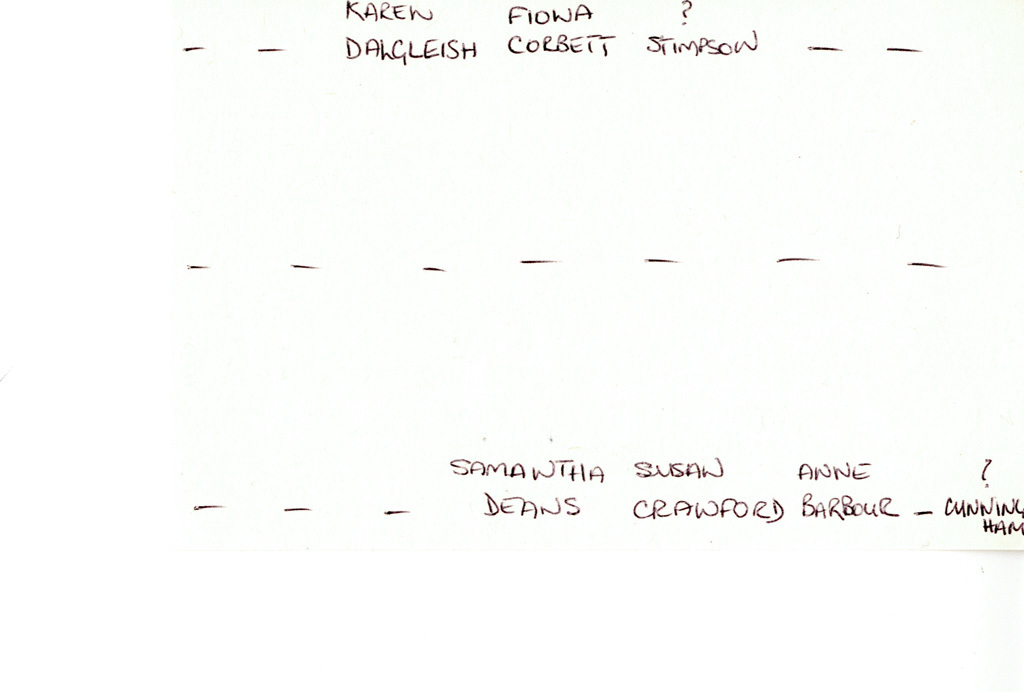 KAREN FIONA ?
— — DALGLEISH CORBETT STIMPSON — —
— — — — — — —
SAMANTHA SUSAN ANNE ?
— — — DEANS CRAWFORD BARBOUR — CUNNING
HAM